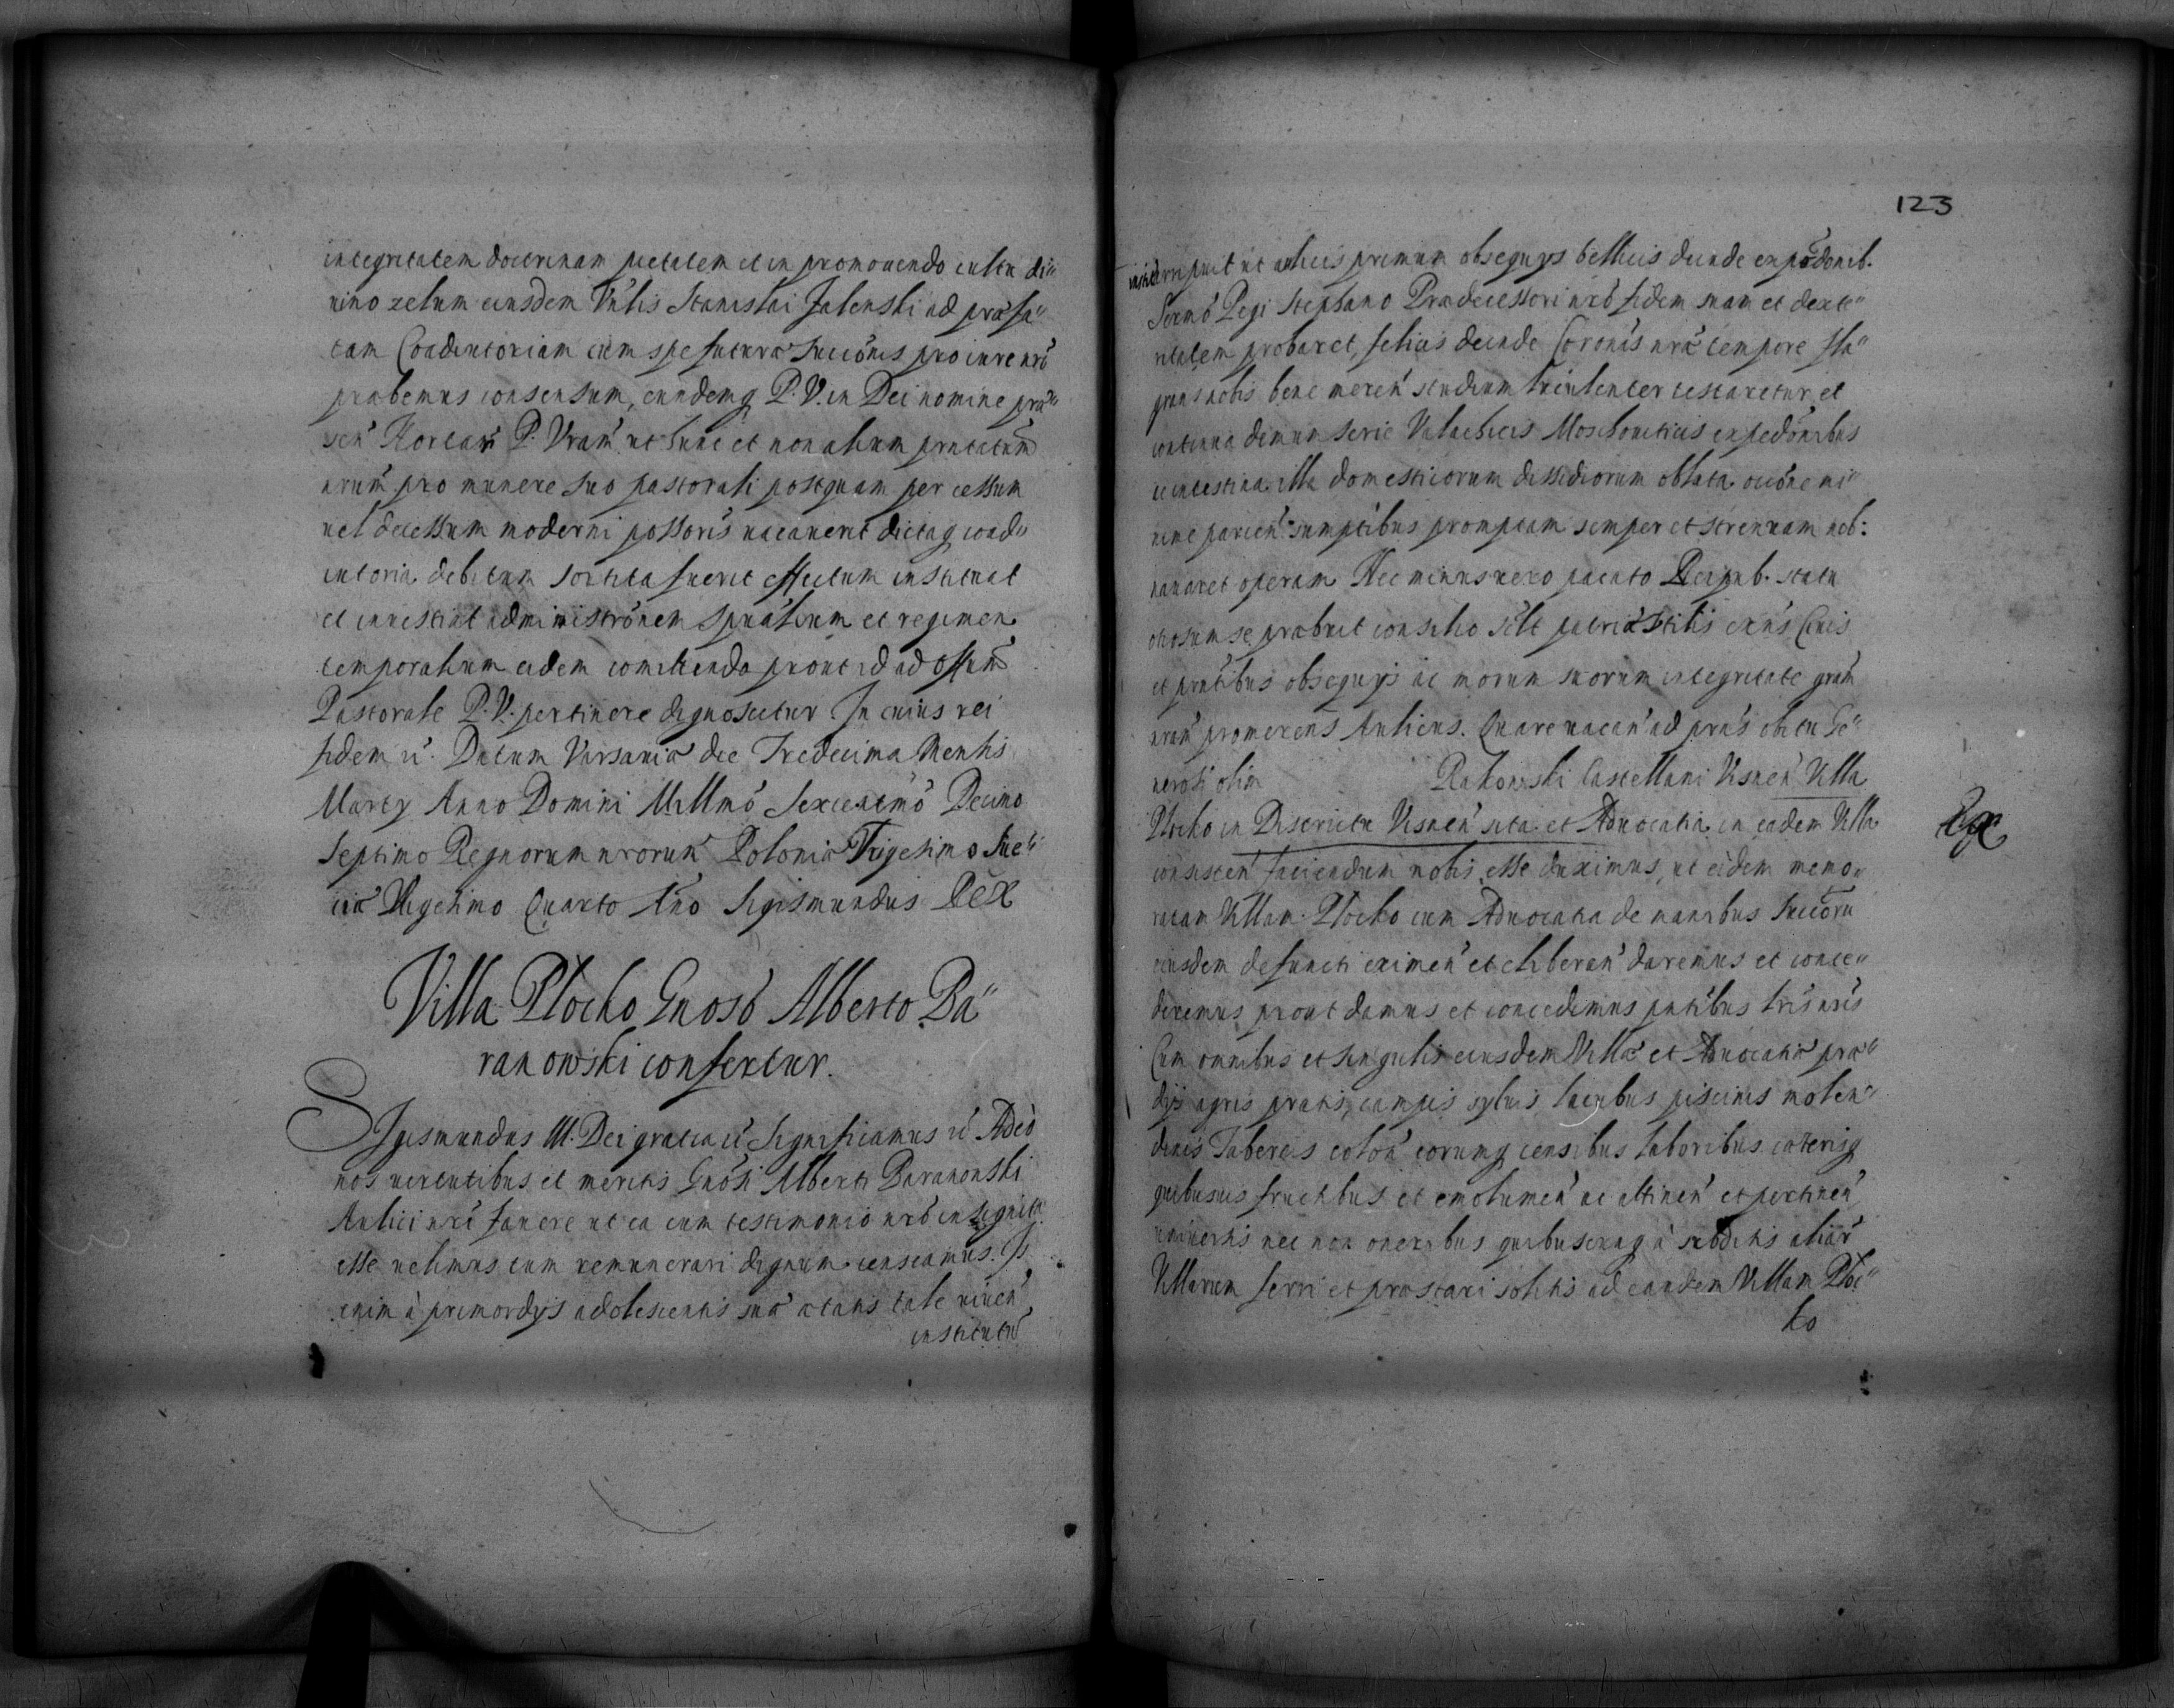 integritatem doctrinam pietatem et in promouendo cultu di"
uino zelum eiusdem Vnlis Stanislai Jalenski ad præfa"
tam Coadiutoriam cum spe futuræ Succōnis pro iure nrō
præbemus consensum, eundemq P. V. in Dei nomine præ"
sen' Hortam' P. Vram' ut hunc et non alium pntatum
nrum' pro munere suo pastorali postquam per cessum
uel decessum moderni possoris uacauerit dictaq coad"
iutoria debitum sortita fuerit effectum instituat
et inuestiat administrōnem spūalium et regimen
temporalium eidem comittendo prout id ad offūm
Pastorale P. V. pertinere dignoscitur In cuius rei
fidem ec. Datum Varsauiæ die Tredecima Mensis
Martij Anno Domini Millmō Sexcentmō Decimo
Septimo Regnorum nrorum Poloniæ Trigesimo Sue"
ciæ Vigesimo Quarto Año Sigismundus Rex
Villa Plocko Gnosō Alberto Ba"
ranowski confertur.
Sigismundus III. Dei gratia ec Significamus ec Adeo
nos uirtutibus et meritis Gnosi Alberti Baranowski
Aulici nrī fauere ut ea cum testimonio nrō insignita
esse uelimus tum remunerari dignum censeamus. Is
enim à primordijs adolescentis suæ ætatis tale uiuen'
institutū
123
arripuit ut aulicis primum obsequijs bellicis deinde expedōnib.
Sermō Regi Stephano Prædecessori nrō fidem suam et dexte"
ritatem probaret, felicis deinde Coronis nræ tempore fla"
grans nobis bene meren' studium luculenter testaretur, et
continua demum serie Valachicis Moschouiticis expedōnibus
ec intestina illa domesticorum dissidiorum oblata occōne mi"
nime parcen' sumptibus promptam semper et strenuam nob:
nauaret operam Nec minus uero pacato Reipub. statu
otiosum se præbuit consilio silt patriæ Vtilis exns Ciuis
et pntibus obsequijs ac morum suorum integritate gram
nram' promerens Aulicus. Quare uacan' ad prns obitu Ge"
nerosi olim Rakowski Castellani Visnen' Villa
Plocko in Districtu Visnen' sita et Aduocatia in eadem Villa
consisten' faciendum nobis esse duximus, ut eidem memo"
ratam Villam Plocko cum Aduocatia de manibus Succorū
eiusdem defuncti eximen' et eliberan' daremus et conce"
deremus prout damus et concedimus pntibus lrīs nrīs
Cum omnibus et singulis eiusdem Villæ et Aduocatiæ præ"
dijs agris pratis, campis syluis, lacubus piscinis molen"
dinis Tabernis colon' eorumq censibus laboribus cæterisq
quibusuis fructibus et emolumen' ac attinen' et pertinen'
uniuersis nec non oneribus quibuscunq à subditis aliar'
Villarum ferri et præstari solitis ad eandem Villam Ploc"
ko